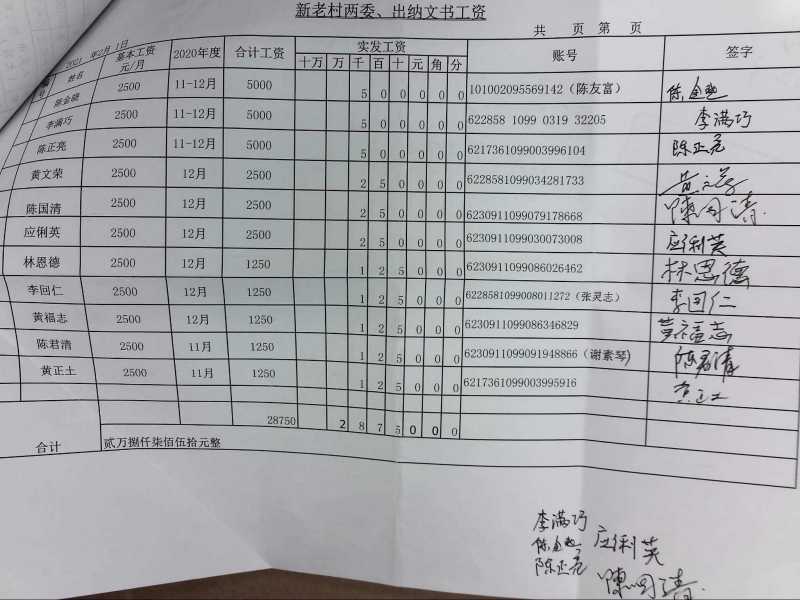 新老村两委、出纳文书工资
共 页 第 页
2021 年2月 1日
号 姓名 基本工资元/月 2020年度 合计工资 实发工资 账号 签字
十万 万 千 百 十 元 角 分
陈金晓 2500 11-12月 5000 5 0 0 0 0 0 101002095569142（陈友富）
李满巧 2500 11-12月 5000 5 0 0 0 0 0 622858 1099 0319 32205 李满巧
陈正亮 2500 11-12月 5000 5 0 0 0 0 0 6217361099003996104 陈正亮
黄文荣 2500 12月 2500 2 5 0 0 0 0 6228581099034281733
陈国清 2500 12月 2500 2 5 0 0 0 0 6230911099079178668 陳国清
应俐英 2500 12月 2500 2 5 0 0 0 0 6230911099030073008 应俐英
林恩德 2500 12月 1250 1 2 5 0 0 0 6230911099086026462 林恩德
李回仁 2500 12月 1250 1 2 5 0 0 0 6228581099008011272（张灵志） 李回仁
黄福志 2500 12月 1250 1 2 5 0 0 0 6230911099086346829 黄福志
陈君清 2500 11月 1250 1 2 5 0 0 0 6230911099091948866（谢素琴) 陈君清
黄正土 2500 11月 1250 1 2 5 0 0 0 6217361099003995916 黄正土
28750 2 8 7 5 0 0 0
合计 贰万捌仟柒佰伍拾元整
李满巧
应俐英
陈正亮
陳国清